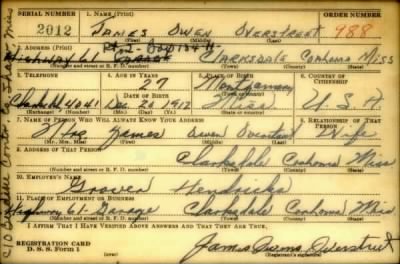 SERIAL NUMBER 1. NAME (Print) ORDER NUMBER
2012 JAMES OWEN OVERSTREET 988
(First) (Middle) (Last)
2. ADDRESS (Print) Rt-2-Box 134 H-
Highway 61 CLARKSDALE COAHOMA MISS
(Number and street or R. F. D. number) (Town) (County) (State)
3. TELEPHONE 4. AGE IN YEARS 5. PLACE OF BIRTH 6. COUNTRY OF CITIZENSHIP
27 Montgomery
4041 Dec. 20 1912 Miss U. S. A.
(Exchange) (Number) (Mo.) (Day) (Yr.) (State or country)
7. NAME OF PERSON WHO WILL ALWAYS KNOW YOUR ADDRESS 8. RELATIONSHIP OF THAT PERSON
Mrs James Owen Overstreet Wife
(Mr., Mrs., Miss) (First) (Middle) (Last)
9. ADDRESS OF THAT PERSON
Clarksdale Coahoma Miss
(Number and street or R. F. D. number) (Town) (County) (State)
10. EMPLOYER'S NAME
Grover Hendricks
11. PLACE OF EMPLOYMENT OR BUSINESS
Highway 61-Garage Clarksdale Coahoma Miss
(Number and street or R. F. D. number) (Town) (County) (State)
I AFFIRM THAT I HAVE VERIFIED ABOVE ANSWERS AND THAT THEY ARE TRUE.
REGISTRATION CARD
D. S. S. Form 1 (over) James Owens Overstreet
(Registrant's signature)